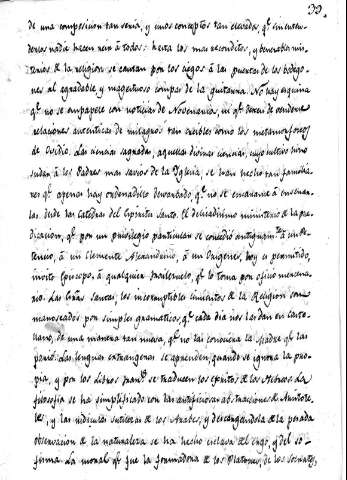 39.
de una composicion tan seria, y unos conceptos tan elevados, qe. sin enten-
derlos nadie hacen reir à todos: hasta los mas recónditos, y venerables mis-
terios de la religion se cantan por los ciegos à las puertas de los bodego-
nes al agradable, y magestuoso compas de la guitarra. No hay esquina
qe. no se empapele con noticias de Novenarios, ni qe. dexen de venderse
relaciones autenticas de milagros tan creibles como los metamorfoseos
de Ovidio. Las ciencias sagradas, aquellas divinas ciencias, cuyo cultivo hizo
sudar à los Padres mas sabios de la Yglesia, se han hecho tan familia-
res qe. apenas hay ordenadillo desbarbado, qe. no se encarame à enseñar-
las desde las Catedras del Espiritu Santo. El delicadisimo ministerio de la pre-
dicacion, qe. por un privilegio particular se concedió antiguamte. à un Pan-
tenus, à un Clemente Alexandrino, à un Origenes, hoy es permitido,
invito Episcopo, à qualquiera frailezuelo, qe. lo toma por oficio mercena-
rio. Las Escrituras Santas, los incorruptibles cimientos de la Religion son
manoseados por simples gramaticos, qe. cada dia nos las dan en caste-
llano, de una manera tan nueva, qe. no las conociera la Madre qe. las
parió. Las lenguas extrangeras se aprenden, quando se ignora la pro-
pia, y por los libros franceses se traducen los escritos de los Hebreos. La
filosofia se ha simplificado con las artificiosas abstracciones de Aristote-
les, y las ridiculas sutilezas de los Arabes; y descargandola de la pesada
observacion de la naturaleza se ha hecho esclava del ergo, y del so-
fisma. La moral qe. fue la formadora de los Platones, de los Socrates,